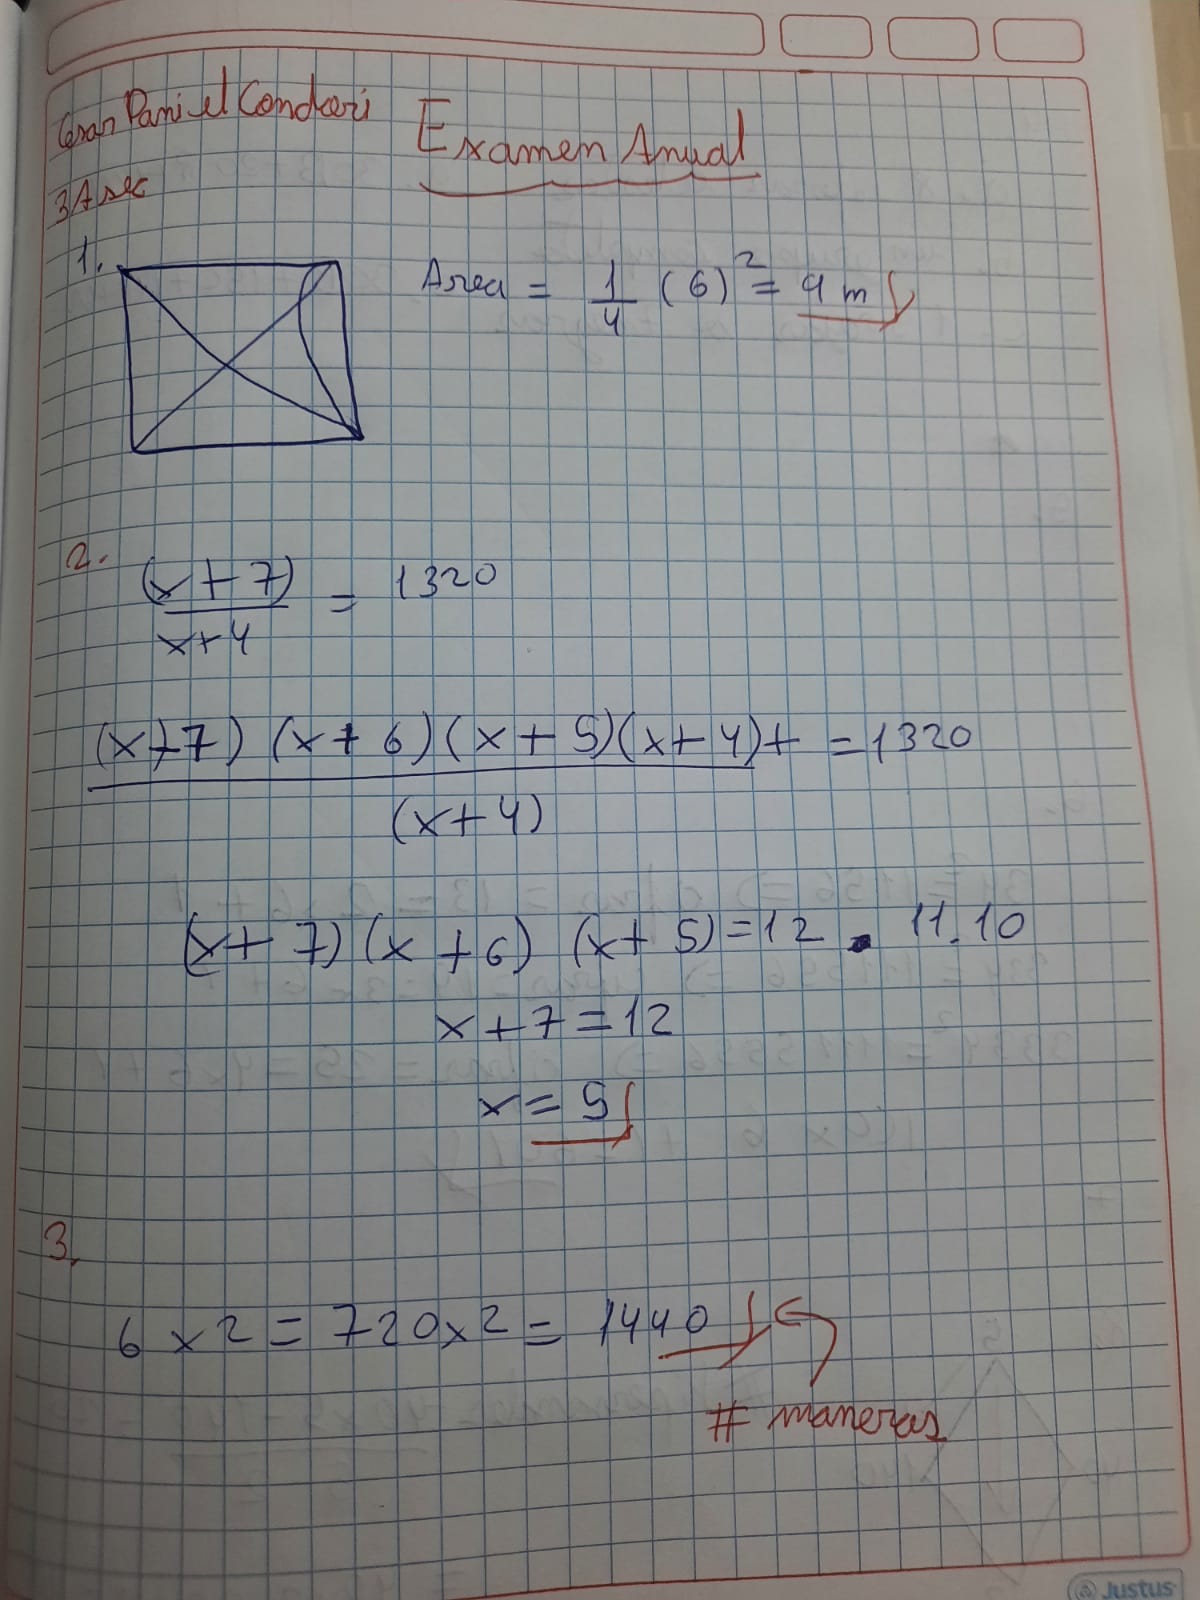 Cesar Daniel Condori
Examen Anual
3A sec
1.
Area = 1/4 (6)² = 9 m
2.
(x+7)/x+4 = 1320
(x+7) (x+6)(x+5)(x+4)+ = 1320
(x+4)
(x+7)(x+6) (x+5)=12 . 11.10
x+7=12
x=5
3.
6 x 2 = 720x2 = 1440
# maneras
Justus